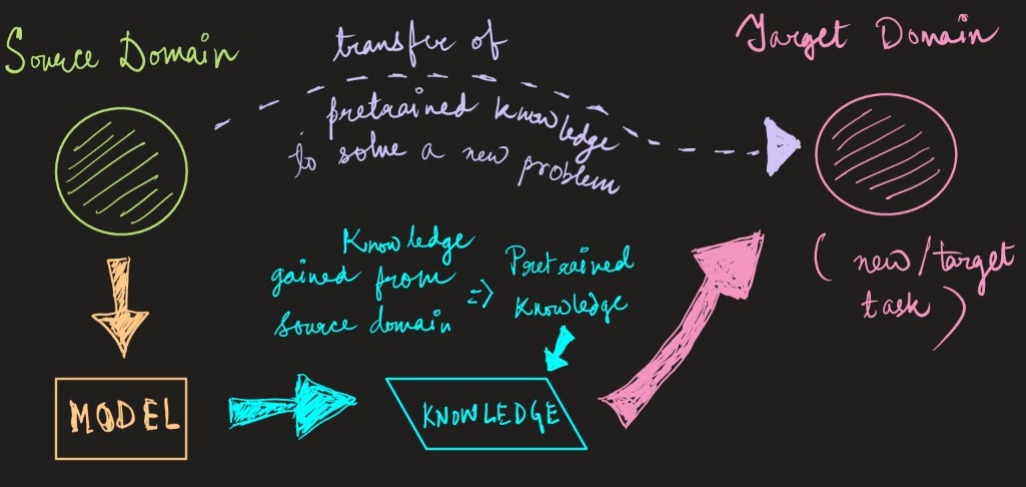 Source Domain
transfer of
pretrained knowledge
to solve a new problem
Target Domain
(new/target
task)
Knowledge
gained from
source domain
=> Pretrained
Knowledge
MODEL
KNOWLEDGE